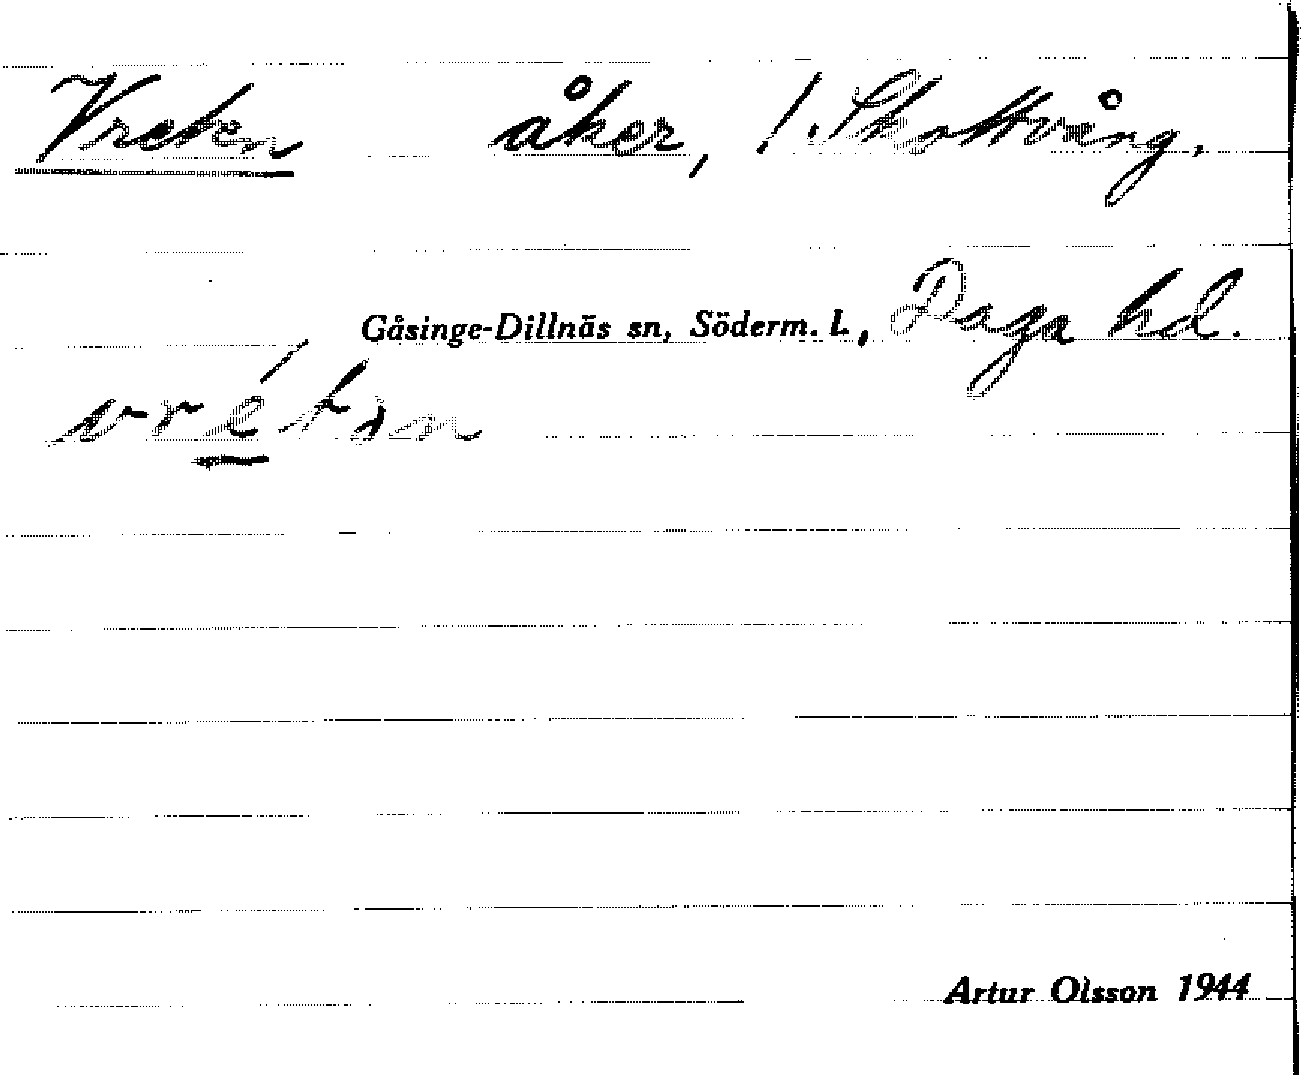 Vreten åker, 1. Skottvång.
Gåsinge-Dillnäs sn, Söderm. l., Daga hd.
vrétən
Artur Olsson 1944